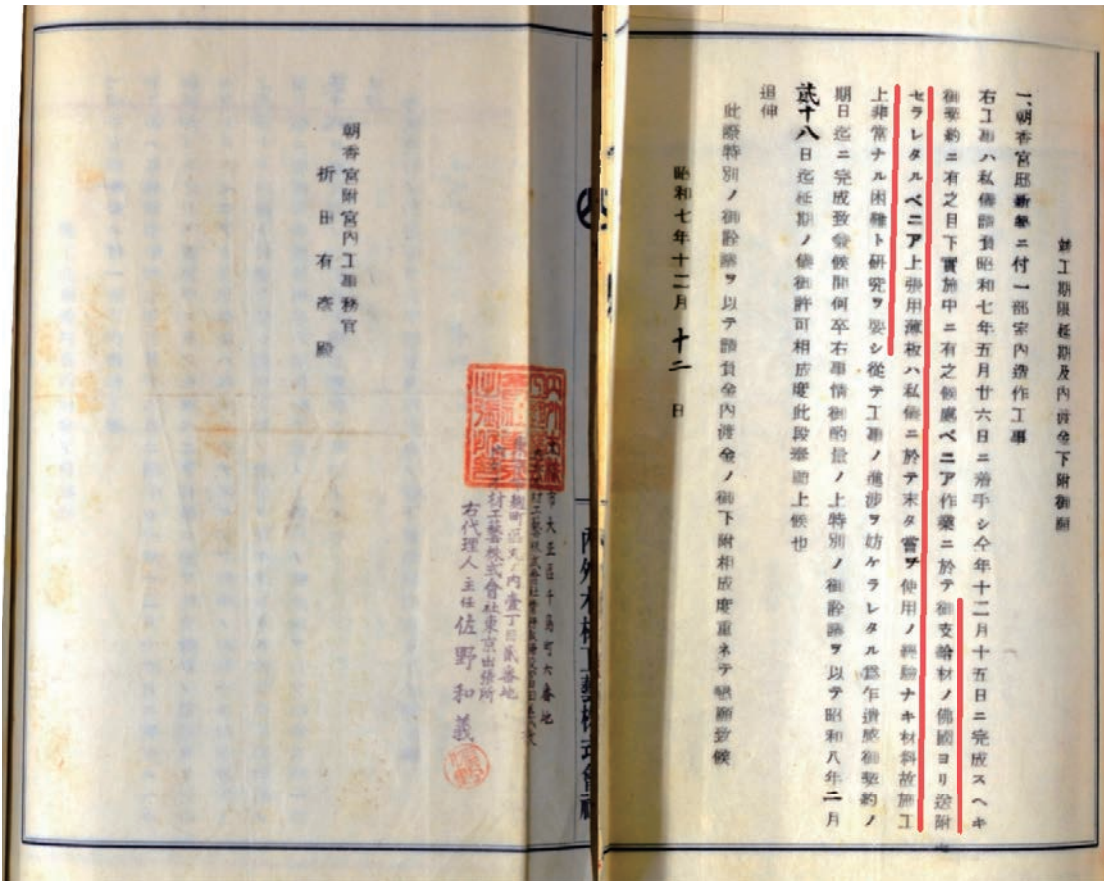 竣工期限延期及内渡金下附御願
一、朝香宮邸新築ニ付一部室内造作工事
右工事ハ私儀請負昭和七年五月廿六日ニ着手シ仝年十二月十五日ニ完成スヘキ
御契約ニ有之目下實施中ニ有之候處ベニア作業ニ於テ御支給材ノ佛國ヨリ送附
セラレタルベニア上張用薄板ハ私儀ニ於テ末タ嘗テ使用ノ經驗ナキ材料故施工
上非常ナル困難ト研究ヲ要シ從テ工事ノ進渉ヲ妨ケラレタル爲乍遺感御契約ノ
期日迄ニ完成致兼候間何卒右事情御酌量ノ上特別ノ御詮議ヲ以テ昭和八年二月
貳十八日迄延期ノ儀御許可相成度此段奉願上候也
追伸
此際特別ノ御詮議ヲ以テ請負金内渡金ノ御下附相成度重ネテ懇願致候
昭和七年十二月十二日
内外木材工藝株式會社
市大正區千島町六番地
材工藝株式會社
麹町區丸ノ内壹丁目貳番地
材工藝株式會社東京出張所
右代理人主任佐野和義
朝香宮附宮内工事務官
折田有彦殿